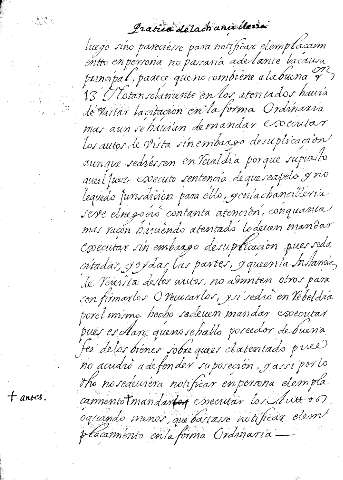 Pratica de la chancilleria
luego si no pareciesse para notificar el emplaçam
iento en persona no passaria adelante la causa
principal, parece que no combiene a la buena
13 Y no tan solamente en los atentados havia
de bastar la citacion en la forma Ordinaria
mas aun se havian de mandar executar
los autos, de Vista sin embargo de suplicacion
aunque se diessen en Rebeldia porque supuesto
que el Juez executo sentencia de que se apelo, y no
le quedo Jurisdicion para ello, y en la chancilleria
se ve el negocio con tanta atencion, con quanta
mas raçon haviendo atentado lo devian mandar
executar sin embargo de suplicacion pues son
citadas, y oydas las partes, y que en la Instancia
de Revista destos autos, no admiten otros para
confirmarlos O Revocarlos, y si se dio en Rebeldia
por el mismo hecho se deven mandar executar
pues es llano, que no se hallo poseedor de buena
fee de los bienes sobre que es el atentado pues
no acudio a defender su posecion, y assi por lo
dho no se deviera notificar en persona el empla
çamiento + mandar executar los Autos
o quando menos, que bastasse notificar el em
plaçamiento en la forma Ordinaria —
+ antes.